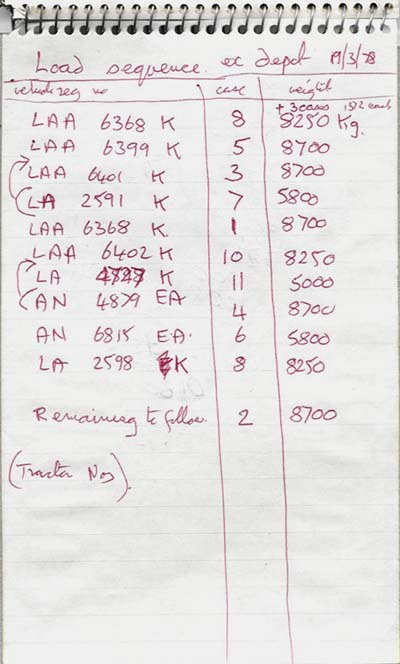 Load sequence ex depot 19/3/78
vehicle reg no case weight
+ 3 cases 1592 each
LAA 6368 K 8 8250 Kg.
LAA 6399 K 5 8700
LAA 6401 K 3 8700
LA 2591 K 7 5800
LAA 6368 K 1 8700
LAA 6402 K 10 8250
LA K 11 5000
AN 4879 EA 4 8700
AN 6815 E.A. 6 5800
LA 2598 K 8 8250
Remaining to follow. 2 8700
(Tractor Nos).